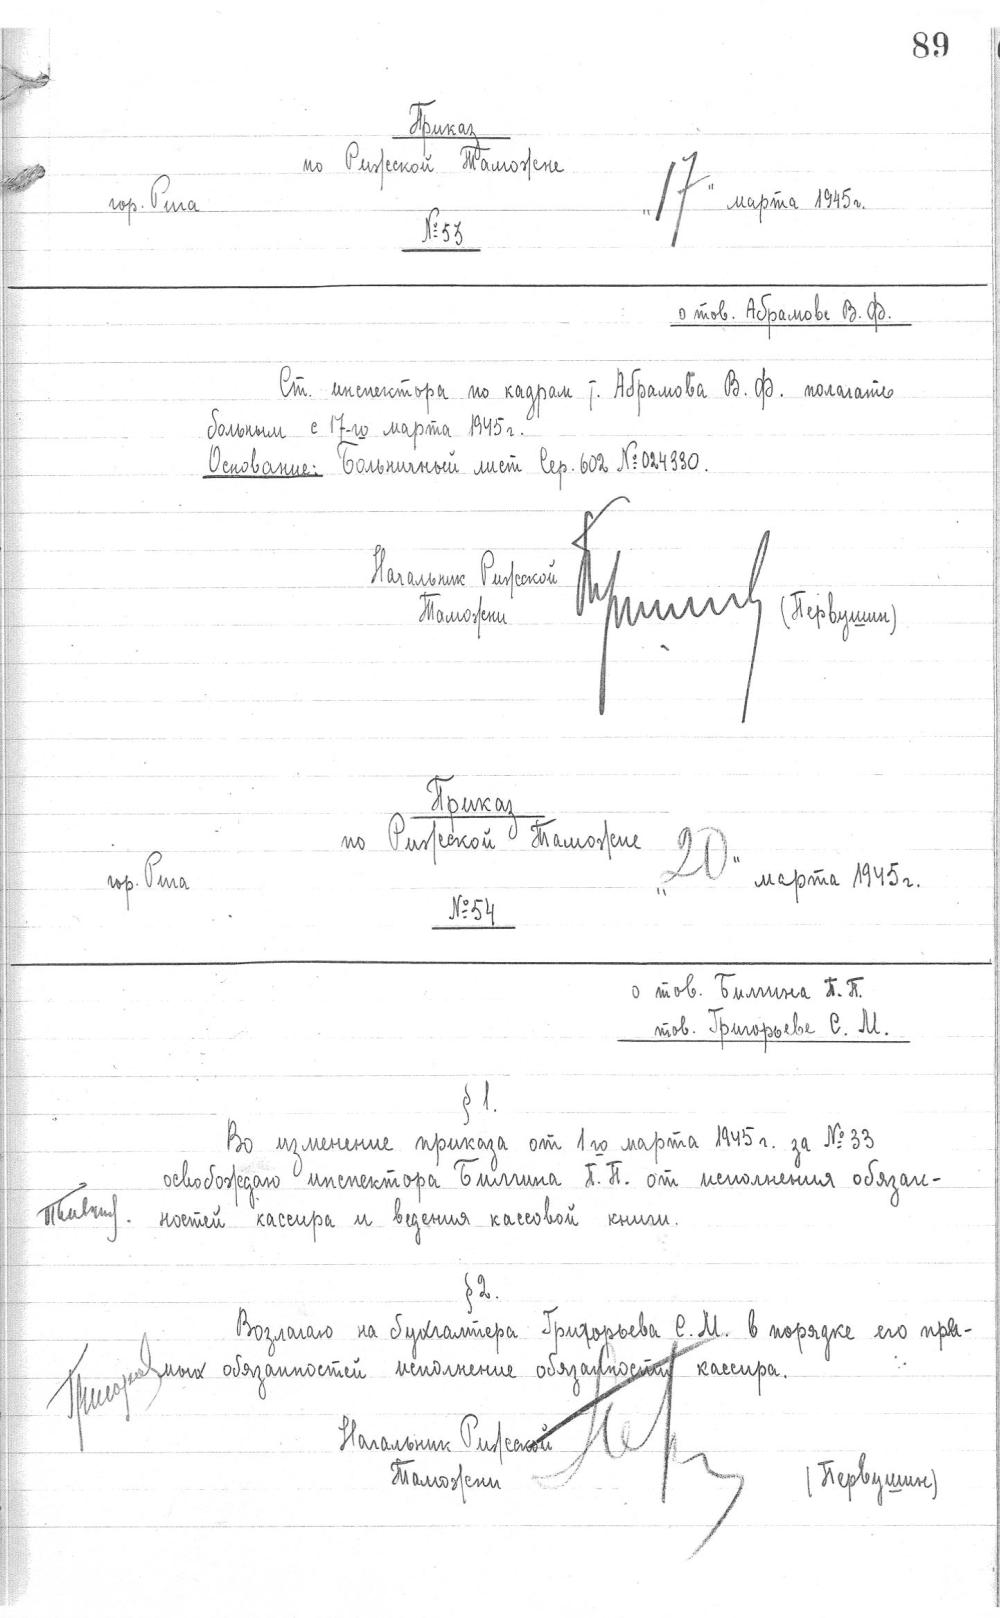 89
Приказ
по Рижской Таможне
гор. Рига
"17" марта 1945г.
№53
о тов. Абрамове В. Ф.
Ст. инспектора по кадрам т. Абрамова В. Ф. полагать
больным с 17-го марта 1945г.
Основание: Больничный лист Сер. 602 №024330.
Начальник Рижской
Таможни
(Первушин)
Приказ
по Рижской Таможне
гор. Рига
"20" марта 1945г.
№54
о тов. Билгина П. П.
тов. Григорьеве С. М.
§ 1.
Во изменение приказа от 1го марта 1945г. за №33
освобождаю инспектора Билгина П. П. от исполнения обязан-
ностей кассира и ведения кассовой книги.
§ 2.
Возлагаю на бухгалтера Григорьева С. М. в порядке его пря-
мых обязанностей исполнение обязанностей кассира.
Начальник Рижской
Таможни
(Первушин)